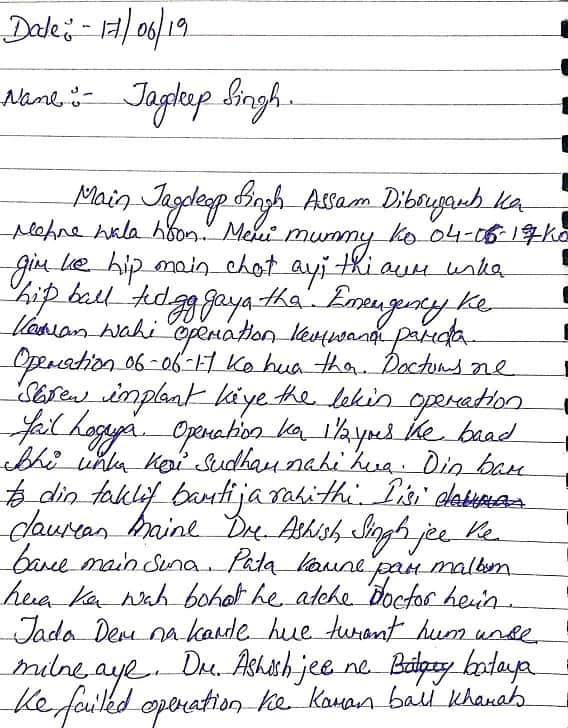 Date:- 17/06/19
Name:- Jagdeep Singh.
Main Jagdeep Singh Assam Dibrugarh Ka
Rehne wala hoon. Meri mummy ko 04-06-17 Ko
gir ke hip main chot ayi thi aur unka
hip ball tut gaya tha. Emergency Ke
Karan wahi operation Kerwana parda.
Operation 06-06-17 Ko hua tha. Doctors ne
Screw implant kiye the lekin operation
fail hogya. Operation ka 1½ yrs Ke baad
bhi unka Koi Sudhar nahi hua. Din bar
din taklif barti ja rahi thi. Iisi
daurean maine Dr. Ashish Singh jee Ke
bare main Suna. Pata karne par malum
hua Ka wah bohot he atche Doctor hein.
Jada Der na karte hue turant hum unse
milne aye. Dr. Ashish jee ne bataya
Ke failed operation Ke Karan ball Kharab